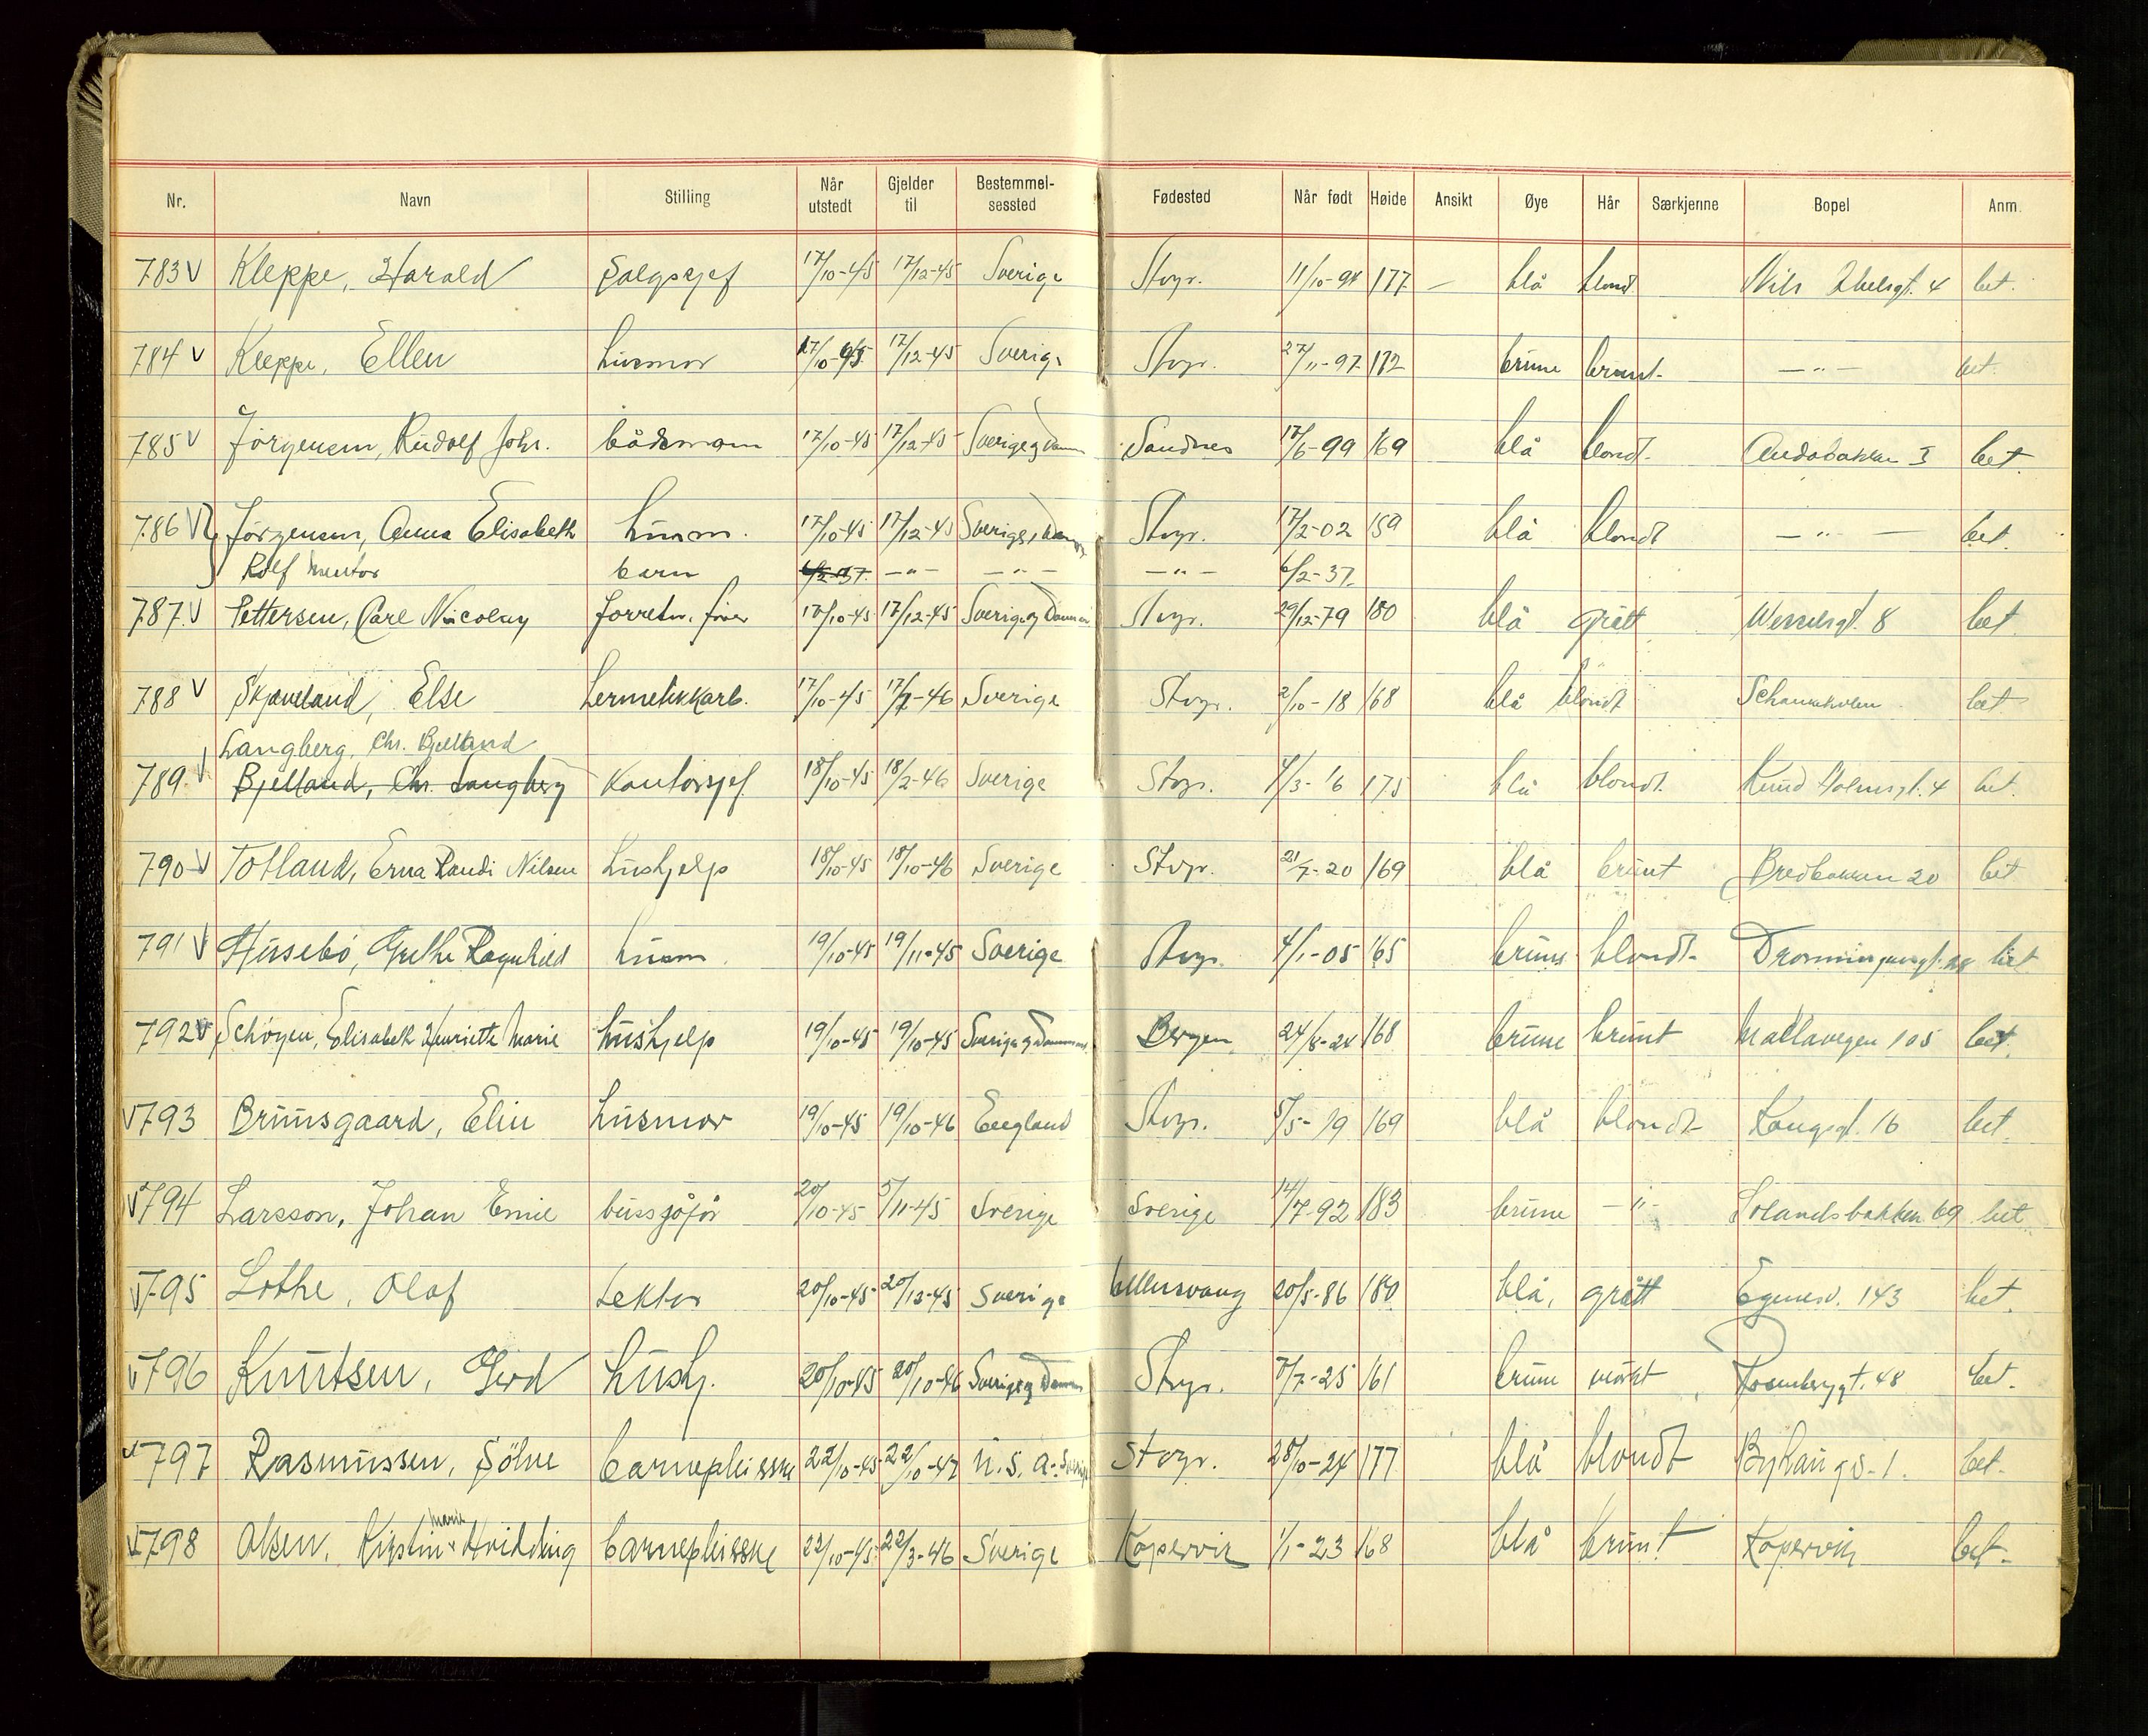 Nr. Navn Stilling Når utstedt Gjelder til Bestemmelsessted Fødested Når født Høide Ansikt Øye Hår Særkjenne Bopel Anm.
783 V Kleppe, Harald Salgssjef 17/10-45 17/12-45 Sverige Stvgr. 11/10-94 177 — blå blond Nils Abelsgt. 4 bet.
784 V Kleppe, Ellen husmor 17/10-45 17/12-45 Sverige Stvgr. 27/11-97 172 brune brunt — " — bet.
785 V Jörgensen, Rudolf Johs. bådsmann 17/10-45 17/12-45 Sverige og Danm Sandnes 17/6-99 169 blå blond Andabakken I bet.
786 V Jörgensen, Anna Elisabeth husm. 17/10-45 17/12-45 Stvgr. 17/2-02 159 blå blondt — " — bet.
Rolf barn 6/2-37 — " — — " — — " — 6/2-37
787 V Pettersen, Carl Nicolay 17/10-45 17/12-45 Sverige og Stvgr. 29/12-79 180 blå grått Wesselsgt. 8 bet.
788 V Skjæveland, Else hermetikkarb. 17/10-45 17/7-46 Sverige Stvgr. 2/10-18 168 blå blondt bet
Langberg, Chr. Bjelland
789 V Bjelland, Chr. Langberg Kontorsjef 18/10-45 18/2-46 Sverige Stvgr. 4/3-16 175 blå blondt Knud Holmsgt. 4 bet.
790 V Totland, Erna Randi Nilsen hushjelp 18/10-45 18/10-46 Sverige Stvgr. 21/7-20 169 blå brunt Bredbakken 20 bet
791 V Husebö, Grethe Ragnhild husm. 19/10-45 19/11-45 Sverige Stvgr. 4/1-05 165 brune blondt bet
792 V Schöyen, Elisabeth Henriette Marie hushjelp 19/10-45 19/10-45 Sverige og Danmark Bergen 24/8-24 168 brune brunt Mallavegen 105 bet.
V 793 Bruusgaard, Elin husmor 19/10-45 19/10-46 England Stvgr. 5/5-19 169 blå blondt Kongsgt. 16 bet.
V 794 Larsson, Johan Emil bussjåför 20/10-45 5/11-45 Sverige Sverige 14/7-92 183 brune — " — Solandsbakken 69 bet
V 795 Lothe, Olaf Lektor 20/10-45 20/12-45 Sverige Ullensvang 20/5-86 180 blå, grått Egenesv. 143 bet.
V 796 Knutsen, Gerd Hushj. 20/10-45 20/10-46 Sverige og Danm Stvgr. 7/7-25 161 brune mörkt Rosenberggt. 48 bet.
V 797 Rasmussen, Sölve barnepleierske 22/10-45 22/10-47 U.S.A. Sverige Stvgr. 28/10-24 177 blå blondt Byhaugs-1. bet.
V 798 Olsen, Kirstin Marie Hvidding barnepleierske 22/10-45 22/3-46 Sverige Kopervik 1/1-23 168 blå brunt Kopervik bet.